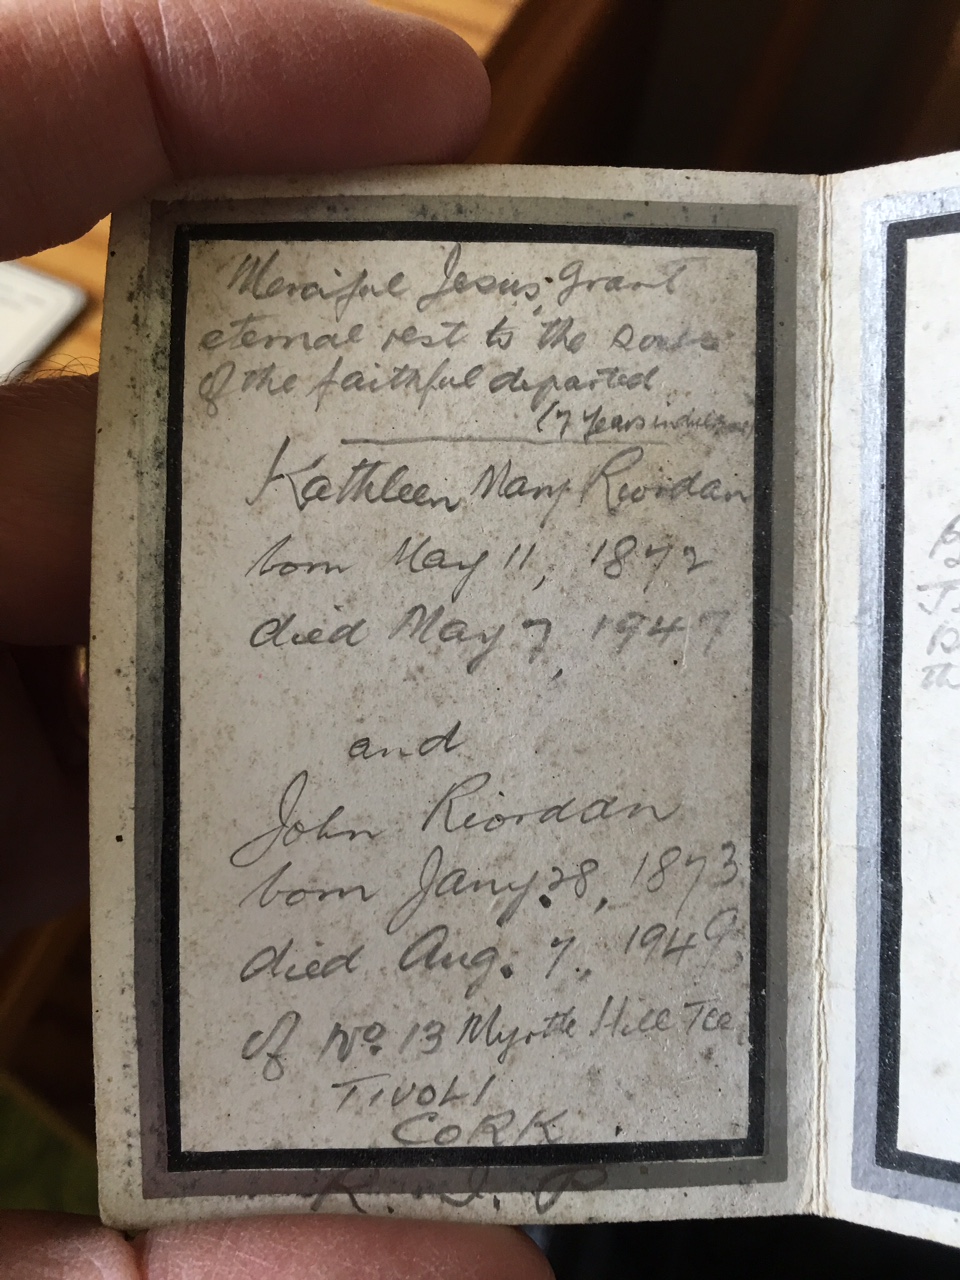 Merciful Jesus, grant
eternal rest to the souls
of the faithful departed
(7 years indulgence
Kathleen Mary Riordan
born May 11, 1872
died May 7, 1947
and
John Riordan
born Jany. 28, 1873
died Aug. 7, 1949
of No. 13 Myrtle Hill Tce
TIVOLI
CORK
R. I. P
th